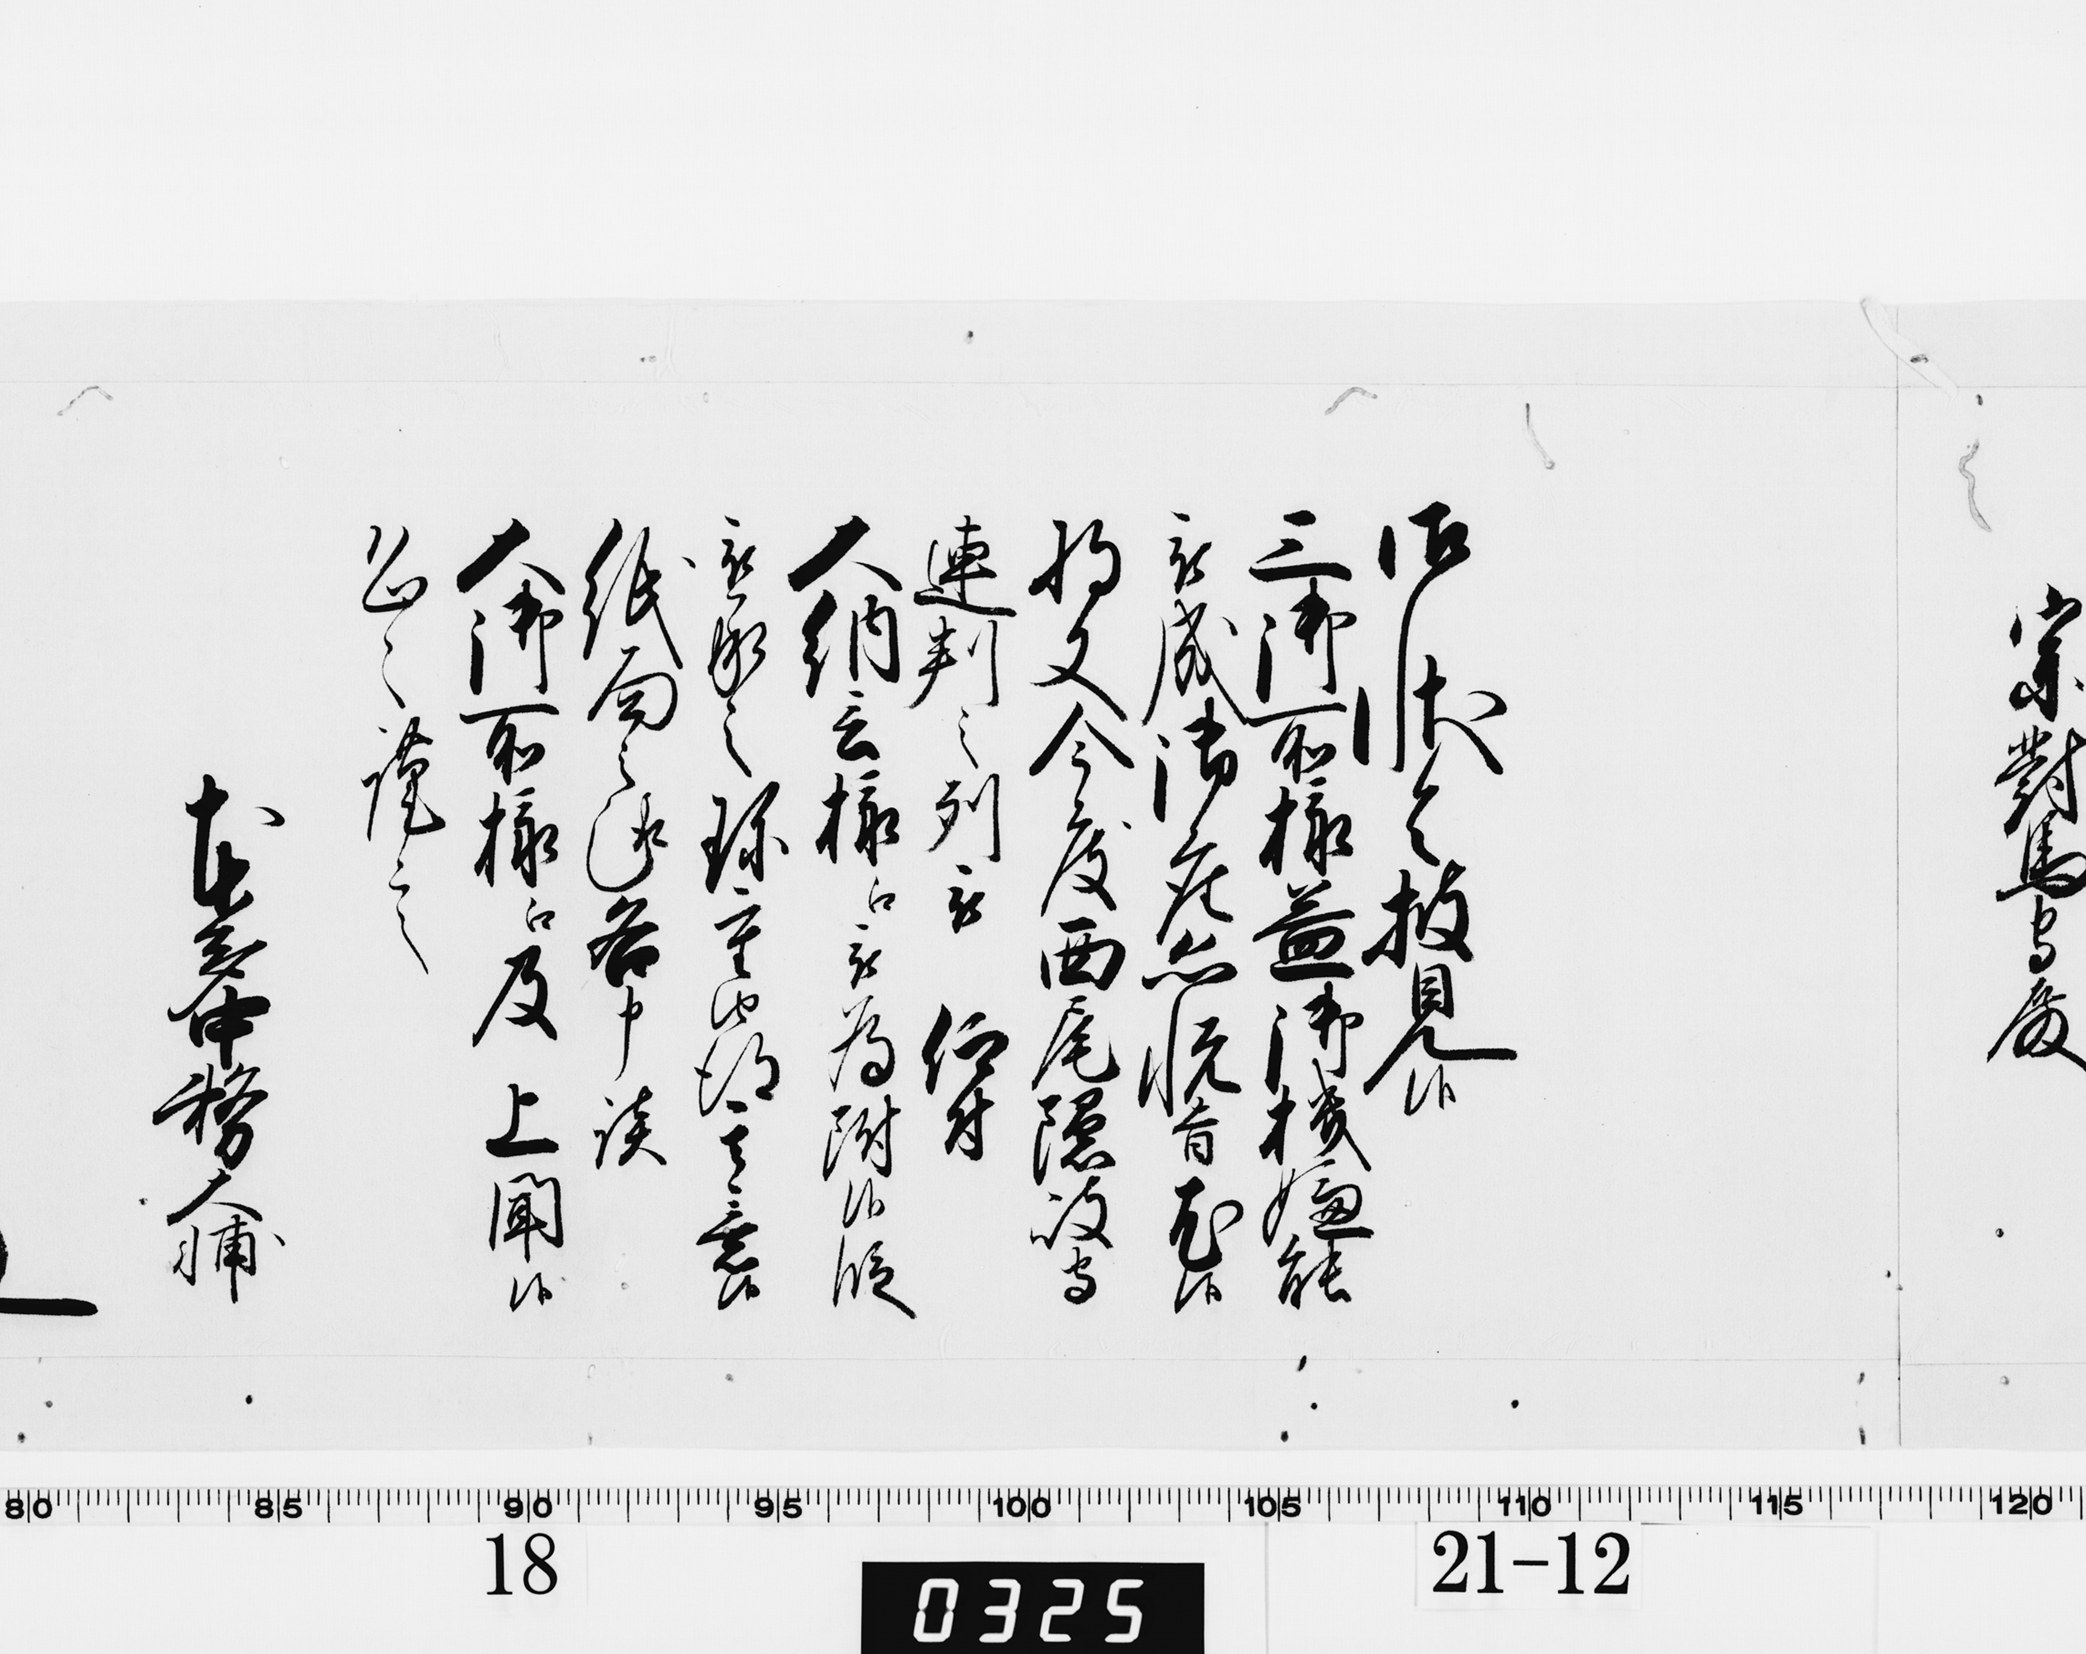 宗對馬守殿
御状令披見候
三御所様益御機嫌能
被成御座恐悦旨尤候
将又今度西尾隠岐守
連判之列被 仰付
大納言様江被為附候段
被承之珍重由得其意候
紙面之趣各申談
大御所様江及 上聞候
恐々謹言
本多中務大輔
80 85 90 95 100 105 110 115 120
18
0325
21-12